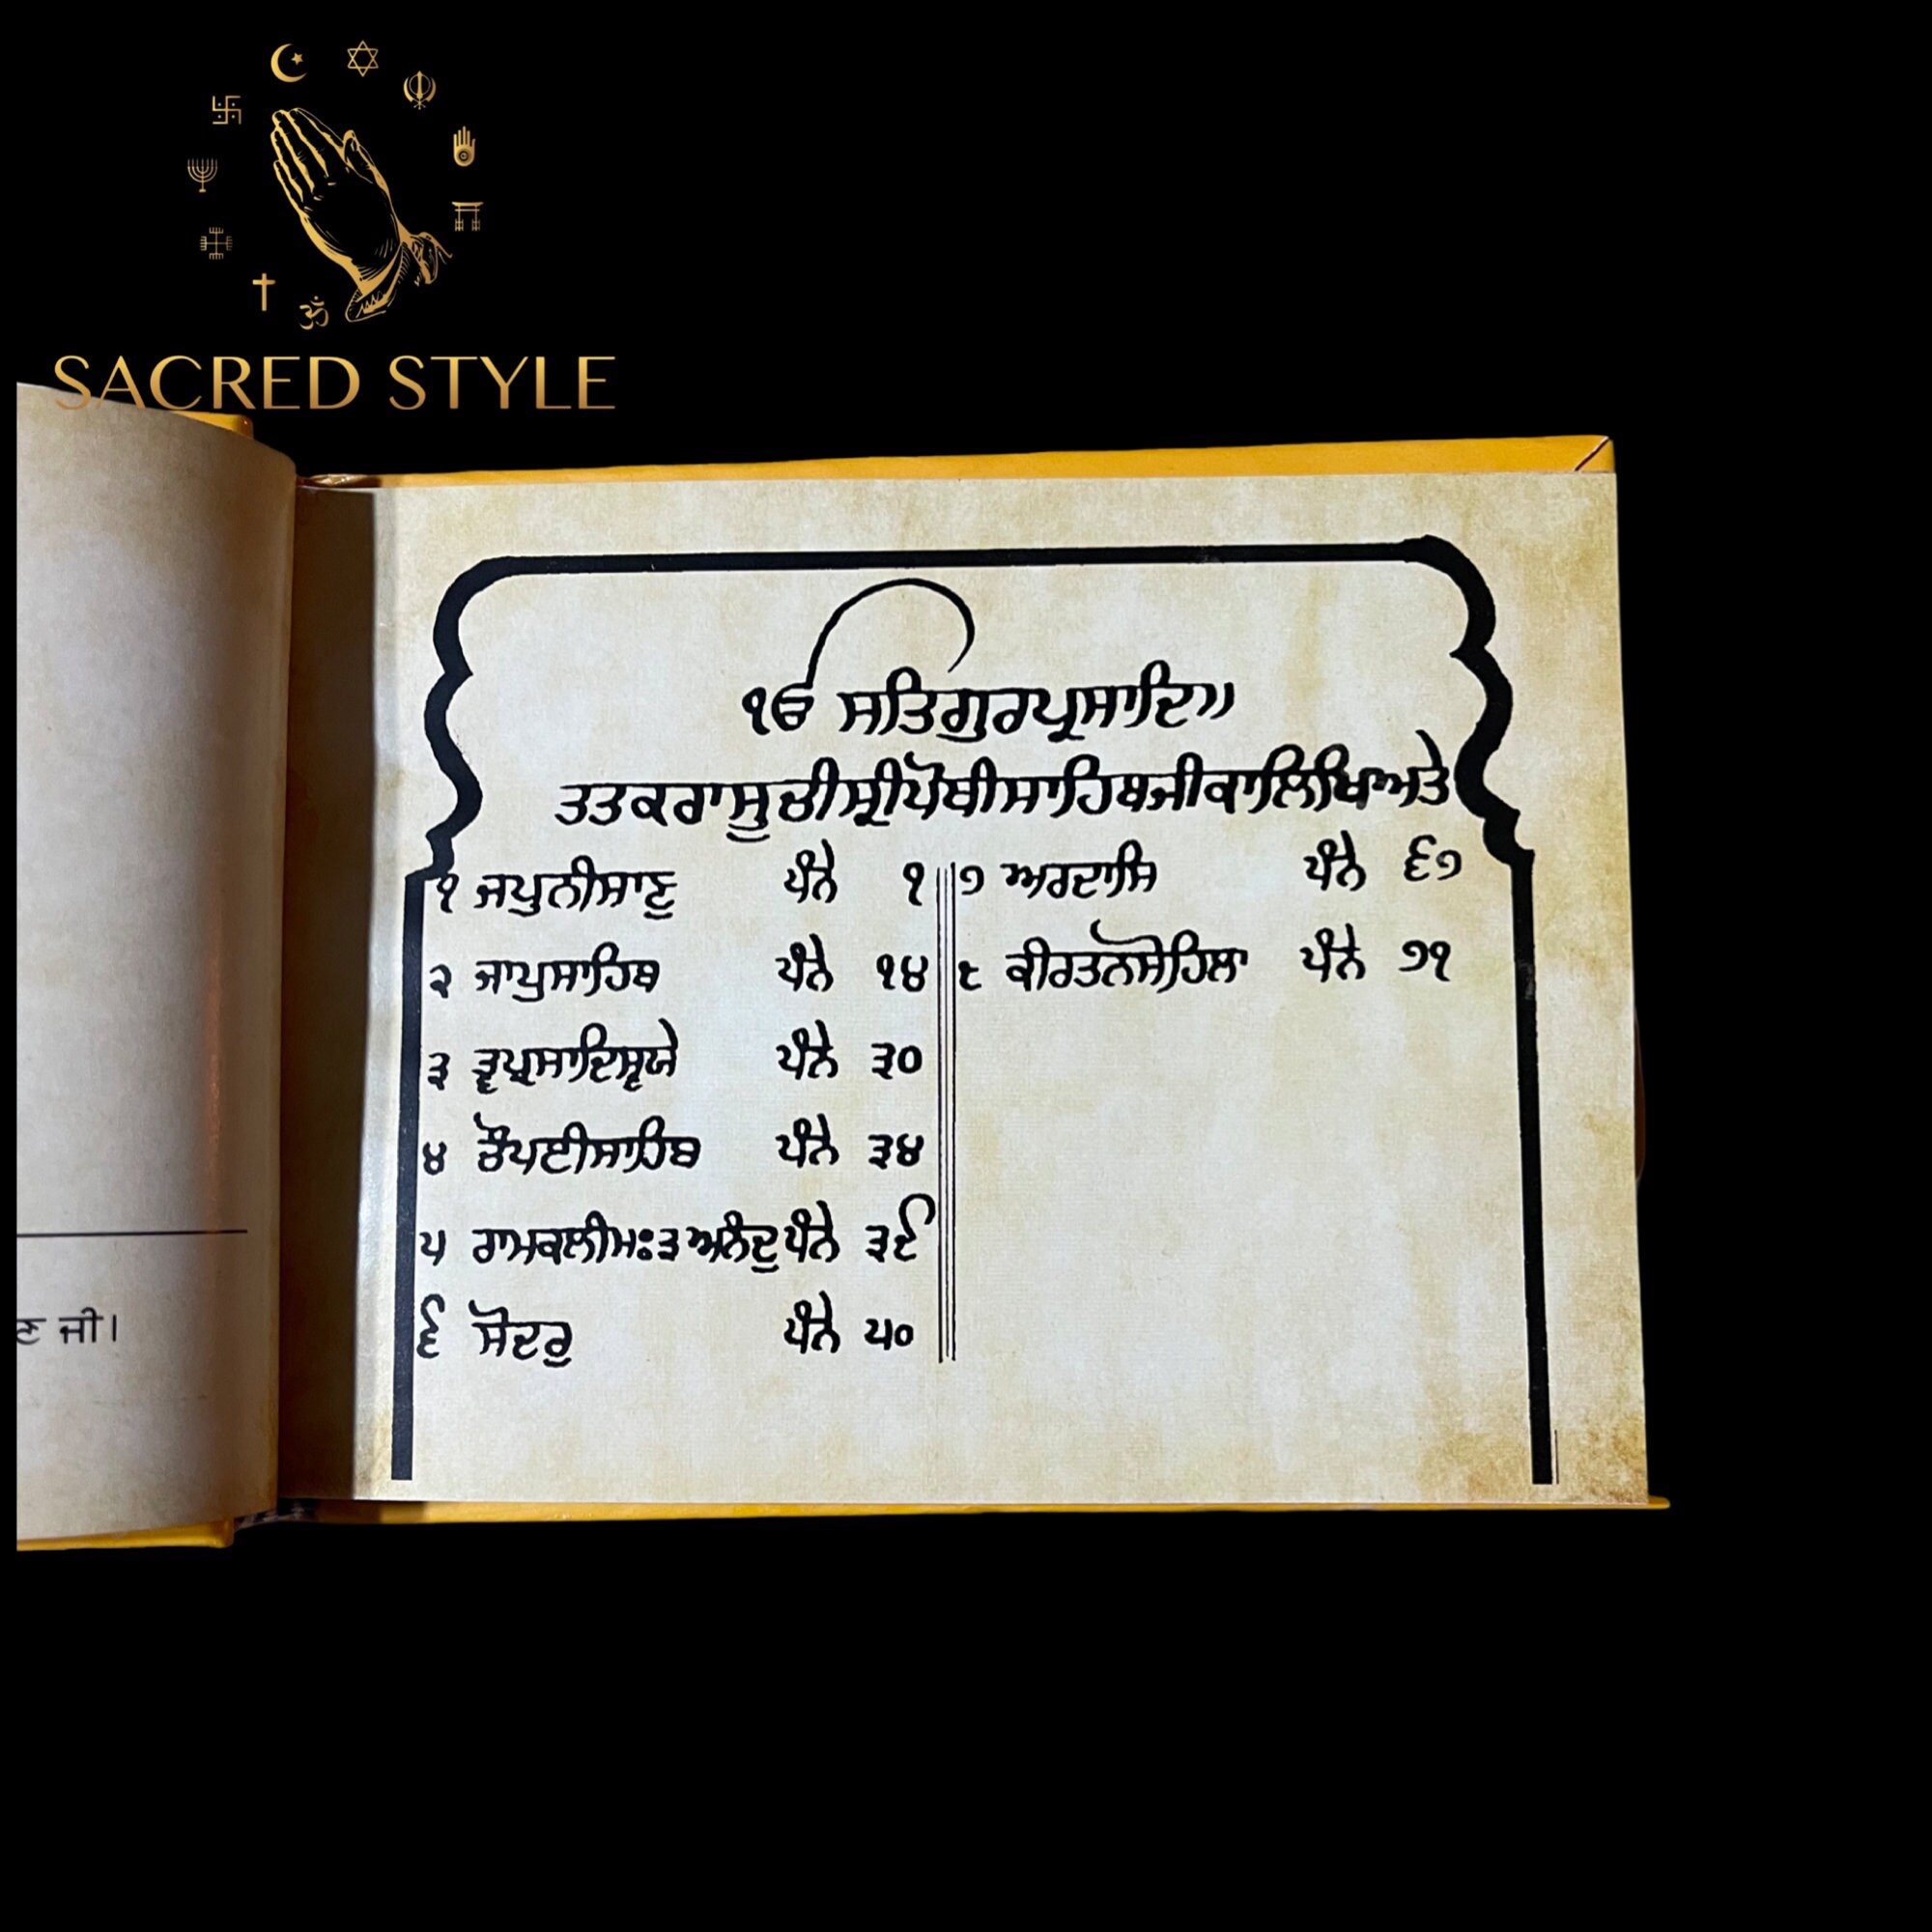 SACRED STYLE
ੴ ਸਤਿਗੁਰਪ੍ਰਸਾਦਿ॥
ਤਤਕਰਾਸੂਚੀਸ੍ਰੀਪੋਥੀਸਾਹਿਬਜੀਕਾਲਿਖਿਅਤੇ
੧ ਜਪੁਨੀਸਾਣੁ ਪੰਨੇ ੧
੨ ਜਾਪੁਸਾਹਿਬ ਪੰਨੇ ੧੪
੩ ਤ੍ਵਪ੍ਰਸਾਦਿਸ੍ਵਯੇ ਪੰਨੇ ੩੦
੪ ਚੌਪਈਸਾਹਿਬ ਪੰਨੇ ੩੪
੫ ਰਾਮਕਲੀਮਃ੩ਅਨੰਦੁ ਪੰਨੇ ੩੯
੬ ਸੋਦਰੁ ਪੰਨੇ ੫੦
੭ ਅਰਦਾਸਿ ਪੰਨੇ ੬੭
੮ ਕੀਰਤਨਸੋਹਿਲਾ ਪੰਨੇ ੭੧
ਣ ਜੀ।